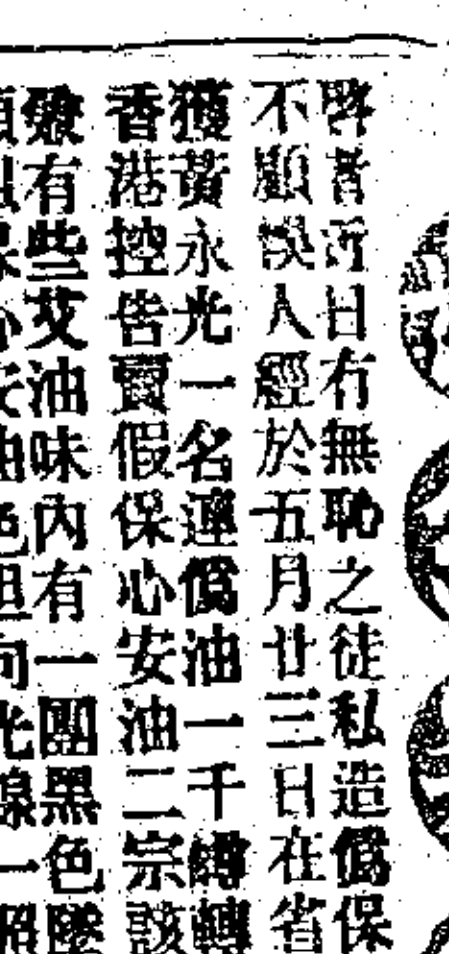 啓者近日有無恥之徒私造偽保
不顧誤人經於五月廿三日在省
獲黃永光一名連偽油一千罇轉
香港控告賣假保心安油二宗該
有些艾油味內有一團黑色墜